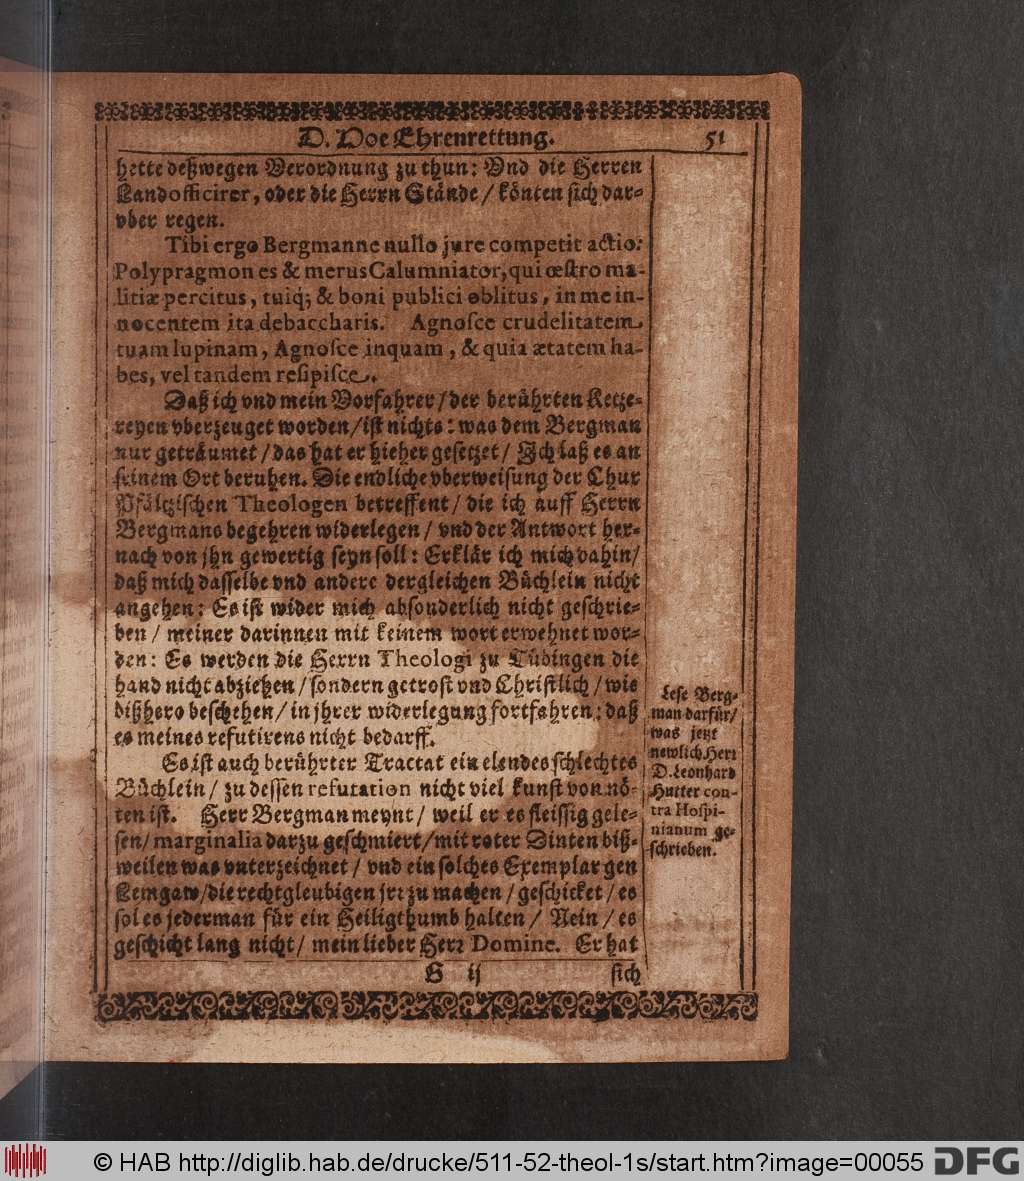 D. Hoe Ehrenrettung. 51
hette deßwegen Verordnung zu thun: Vnd die Herren
Landofficirer, oder die Herrn Stände / könten sich dar-
vber regen.
Tibi ergo Bergmanne nullo jure competit actio:
Polypragmon es & merus Calumniator, qui œstro ma-
litiæ percitus, tuiq; & boni publici oblitus, in me in-
nocentem ita debaccharis. Agnosce crudelitatem
tuam lupinam, Agnosce inquam, & quia ætatem ha-
bes, vel tandem resipisce.
Daß ich vnd mein Vorfahrer / der berührten Ketze-
reyen vberzeuget worden / ist nichts: was dem Bergman
nur geträumet / das hat er hieher gesetzet / Ich laß es an
seinem Ort beruhen. Die endliche vberweisung der Chur
Pfältzischen Theologen betreffent / die ich auff Herrn
Bergmans begehren widerlegen / vnd der Antwort her-
nach von jhn gewertig seyn soll: Erklär ich mich dahin /
daß mich dasselbe vnd andere dergleichen Büchlein nicht
angehen: Es ist wider mich absonderlich nicht geschrie-
ben / meiner darinnen mit keinem wort erwehnet wor-
den: Es werden die Herrn Theologi zu Tübingen die
hand nicht abziehen / sondern getrost vnd Christlich / wie
bißhero beschehen / in jhrer widerlegung fortfahren: daß
es meines refutirens nicht bedarff.
Es ist auch berührter Tractat ein elendes schlechtes
Büchlein / zu dessen refutation nicht viel kunst von nö-
ten ist. Herr Bergman meynt / weil er es fleissig gele-
sen / marginalia darzu geschmiert / mit roter Dinten biß-
weilen was vnterzeichnet / vnd ein solches Exemplar gen
Lemgaw / die rechtgleubigen jrr zu machen / geschicket / es
sol es jederman für ein Heiligthumb halten / Nein / es
geschicht lang nicht / mein lieber Herr Domine. Er hat
G ij sich
Lese Berg-
man darfür /
was jetzt
newlich Herr
D. Leonhard
Hutter con-
tra Hospi-
nianum ge-
schrieben.
© HAB http://diglib.hab.de/drucke/511-52-theol-1s/start.htm?image=00055 DFG